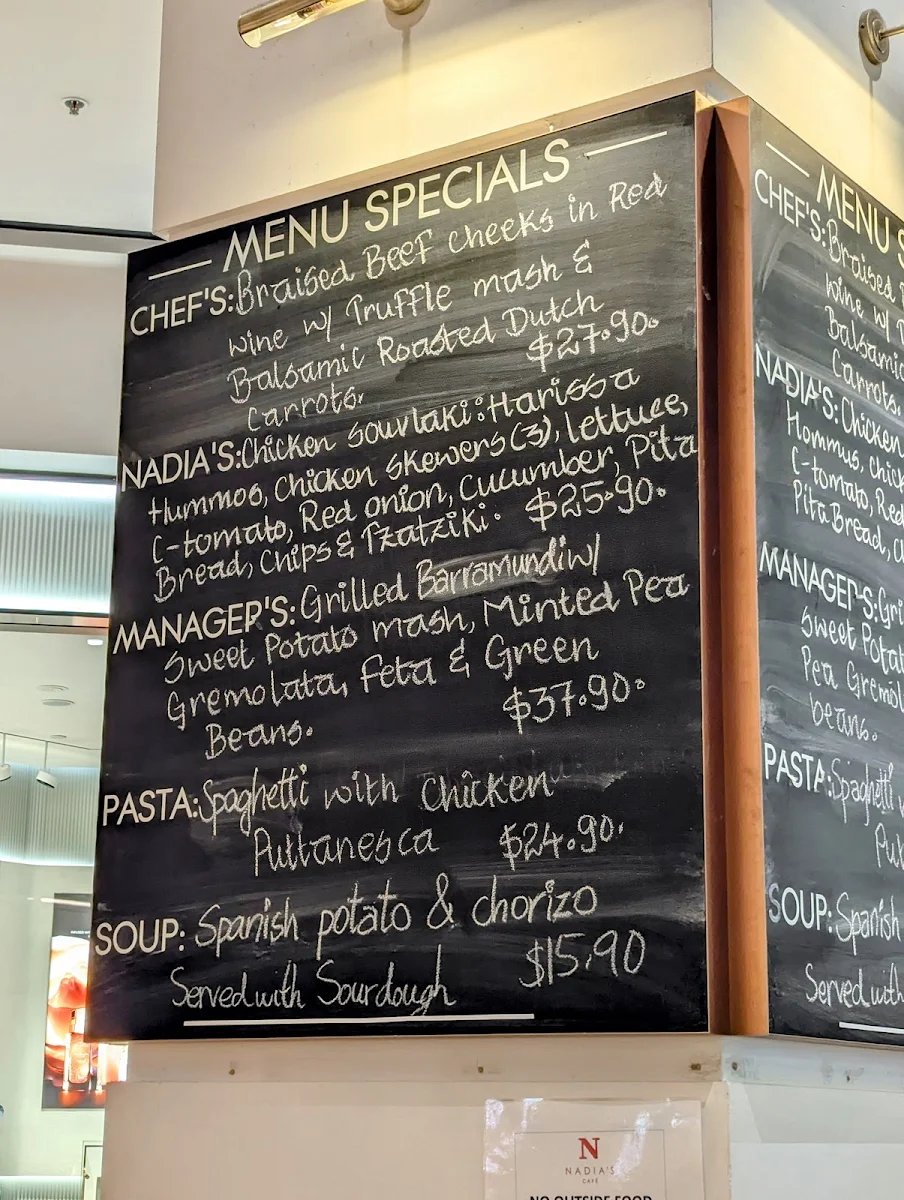 MENU SPECIALS
CHEF'S: Braised Beef cheeks in Red
wine w/ Truffle mash &
Balsamic Roasted Dutch
carrots. $27.90.
NADIA'S: Chicken Souvlaki: Harissa
Hummos, Chicken skewers (3), lettuce,
C-tomato, Red onion, Cucumber, Pita
Bread, Chips & Tzatziki. $25.90.
MANAGER'S: Grilled Barramundi w/
Sweet Potato mash, Minted Pea
Gremolata, Feta & Green
Beans. $37.90.
PASTA: Spaghetti with Chicken
Puttanesca $24.90.
SOUP: Spanish potato & chorizo
Served with Sourdough $15.90
MENU S
CHEF'S: Braised
wine w/
Balsamic
Carrots.
NADIA'S: Chicken
Hommus, Chick
C-tomato, Red
Pita Bread, C
MANAGER'S: Gri
Sweet Potat
Pea Gremol
beans.
PASTA: Spaghetti
Pu
SOUP: Spanish
Served with
N
NADIA'S
CAFÉ
NO OUTSIDE FOOD